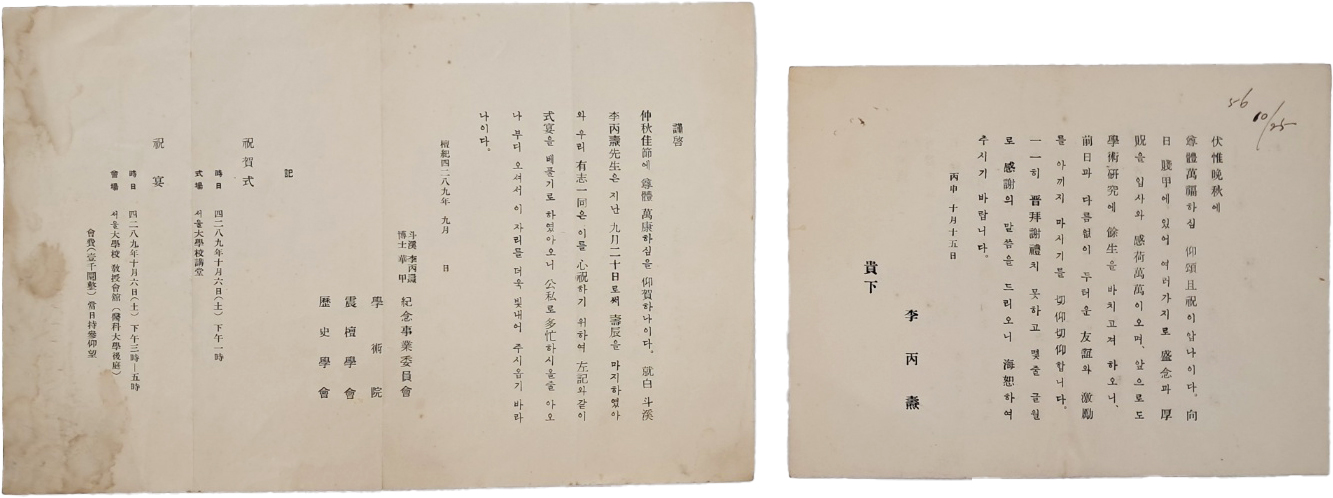 謹啓
仲秋佳節에 尊體 萬康하심을 仰賀하나이다. 就白 斗溪
李丙燾先生은 지난 九月二十日로써 壽辰을 마지하였아
와 우리 有志一同은 이를 心祝하기 위하여 左記와같이
式宴을 베풀기로 하였아오니 公私로多忙하시올줄 아오
나 부디 오셔서 이 자리를 더욱 빛내어 주시옵기 바라
나이다.
檀紀四二八九年 九月 日
斗溪 李丙燾
博士 華甲
紀念事業委員會
學術院
震檀學會
歷史學會
記
祝賀式
時日 四二八九年十月六日(土) 下午一時
式場 서울大學校講堂
祝宴
時日 四二八九年十月六日(土) 下午三時—五時
會場 서울大學校 敎授會館 (醫科大學後庭)
會費(壹千圜整) 當日持參仰望
56 10/25
伏惟晩秋에
尊體萬福하심 仰頌且祝이압나이다. 向
日 賤甲에 있어 여러가지로 盛念과 厚
貺을 입사와 感荷萬萬이오며, 앞으로도
學術硏究에 餘生을 바치고져 하오니,
前日과 다름없이 두터운 友誼와 激勵
를 아끼지 마시기를 切仰切仰합니다.
一一히 晋拜謝禮치 못하고 몇줄 글월
로 感謝의 말씀을 드리오니 海恕하여
주시기 바랍니다.
丙申 十月十五日
李丙燾
貴下